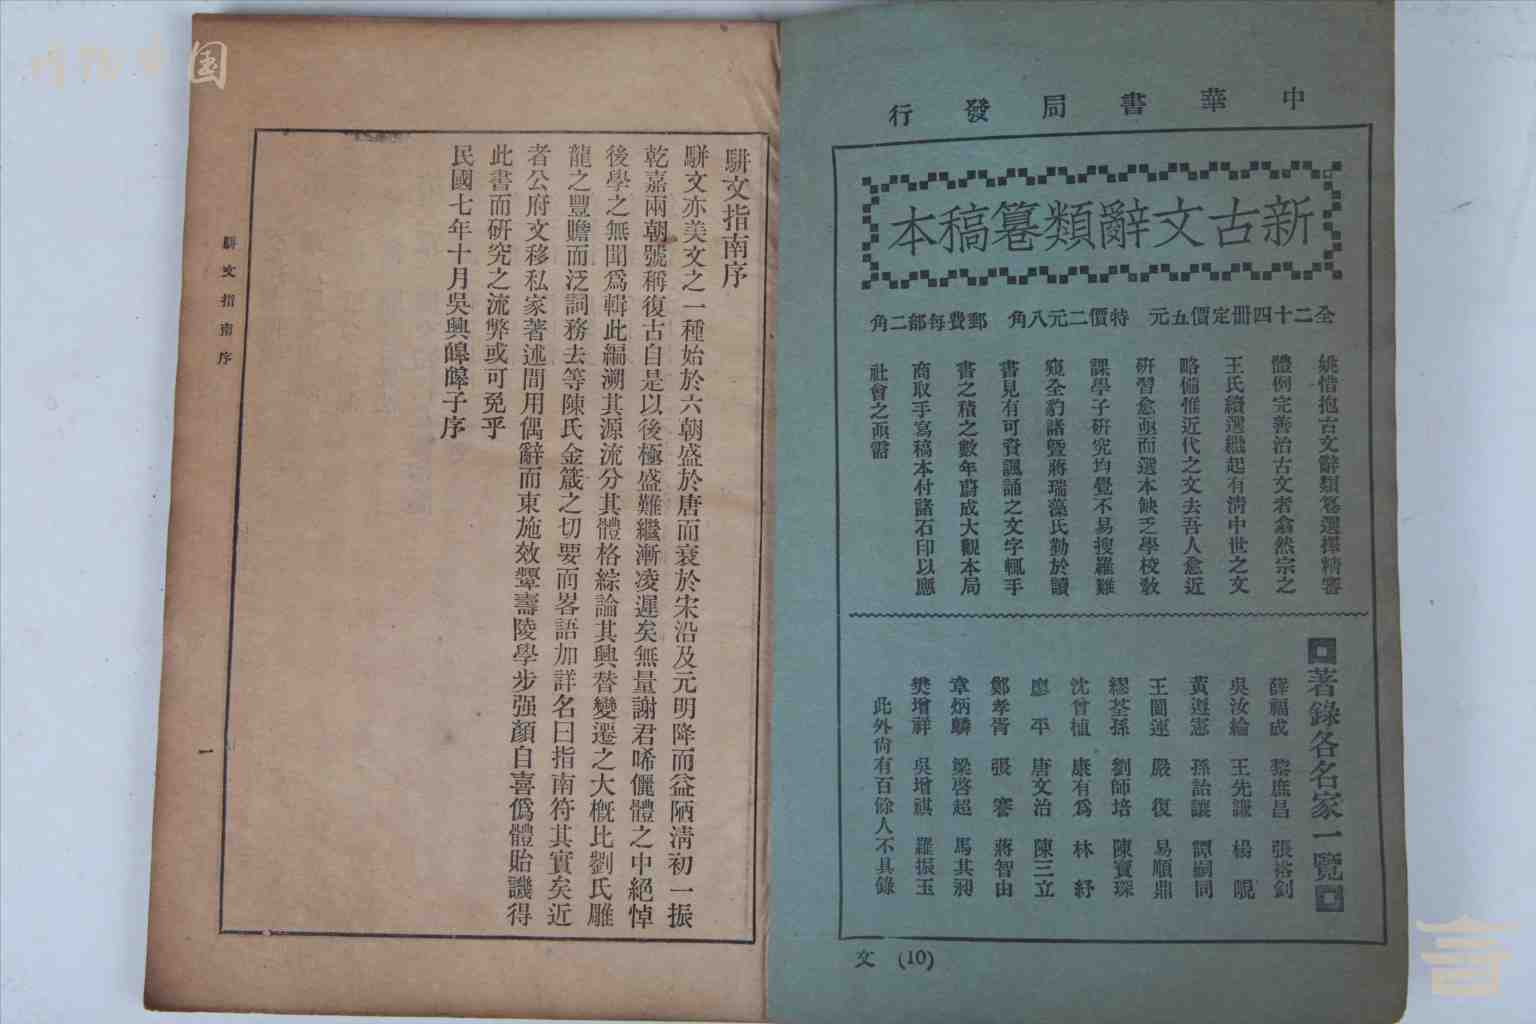 中華書局發行
新古文辭類篹稿本
全二十四冊定價五元 特價二元八角 郵費每部二角
姚惜抱古文辭類篹選擇精審
體例完善治古文者翕然宗之
王氏續選繼起有淸中世之文
略備惟近代之文去吾人愈近
硏習愈亟而選本缺乏學校敎
課學子硏究均覺不易搜羅難
窺全豹諸暨蔣瑞藻氏勤於讀
書見有可資諷誦之文字輒手
書之積之數年蔚成大觀本局
商取手寫稿本付諸石印以應
社會之亟需
著錄各名家一覽
薛福成 黎庶昌 張裕釗
吳汝綸 王先謙 楊 峴
黃遵憲 孫詒讓 譚嗣同
王闓運 嚴 復 易順鼎
繆荃孫 劉師培 陳寶琛
沈曾植 康有爲 林 紓
廖 平 唐文治 陳三立
鄭孝胥 張 謇 蔣智由
章炳麟 梁啓超 馬其昶
樊增祥 吳增祺 羅振玉
此外尙有百餘人不具錄
文 (10)
駢文指南序
駢文亦美文之一種始於六朝盛於唐而衰於宋沿及元明降而益陋淸初一振
乾嘉兩朝號稱復古自是以後極盛難繼漸凌遲矣無量謝君唏儷體之中絕悼
後學之無聞爲輯此編溯其源流分其體格綜論其興替變遷之大槪比劉氏雕
龍之豐贍而泛詞務去等陳氏金箴之切要而畧語加詳名曰指南符其實矣近
者公府文移私家著述間用偶辭而東施效顰壽陵學步强顏自喜僞體貽譏得
此書而硏究之流弊或可免乎
民國七年十月吳興皞皞子序
駢文指南序
一
国
言